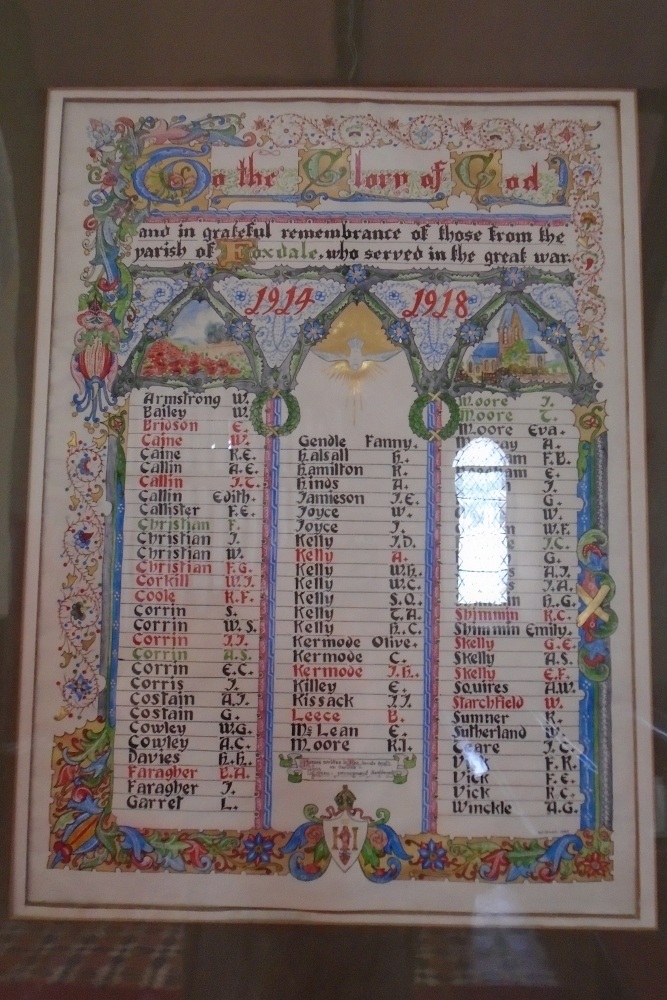 To the Glory of God
and in grateful remembrance of those from the
parish of Foxdale, who served in the great war.
1914 1918
Armstrong W.
Bailey W.
Bridson E.
Caine W.
Caine R.E.
Callin A.E.
Callin J.T.
Callin Edith.
Callister F.E.
Christian F.
Christian J.
Christian W.
Christian F.G.
Corkill W.J.
Coole R.F.
Corrin S.
Corrin W.S.
Corrin J.J.
Corrin A.S.
Corrin E.C.
Corris J.
Costain A.J.
Costain G.
Cowley W.G.
Cowley A.C.
Davies H.H.
Faragher B.A.
Faragher J.
Garret L.
Gendle Fanny.
Halsall H.
Hamilton R.
Hinds A.
Jamieson J.E.
Joyce W.
Joyce J.
Kelly J.D.
Kelly A.
Kelly W.H.
Kelly W.C.
Kelly S.Q.
Kelly T.A.
Kelly H.C.
Kermode Olive.
Kermode C.
Kermode J.H.
Killey E.
Kissack J.J.
Leece B.
McLean E.
Moore R.J.
Moore J.
Moore T.
Moore Eva.
A.
F.B.
E.
J.
G.
W.
W.F.
J.C.
G.
A.J.
J.A.
H.G.
Shimmin R.C.
Shimmin Emily.
Skelly G.E.
Skelly A.S.
Skelly E.F.
Squires A.W.
Starchfield W.
Sumner R.
Sutherland W.
Teare J.C.
F.R.
Vick F.E.
Vick R.C.
Winckle A.G.